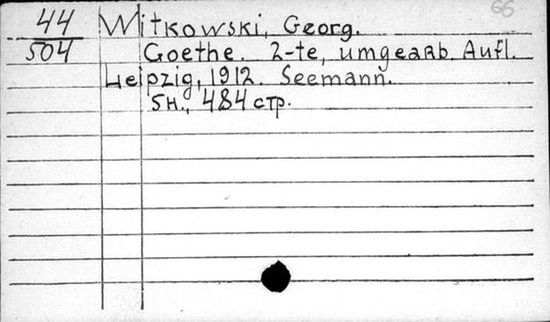 66
44 Witkowski, Georg.
504 Goethe. 2-te, umgearb. Aufl.
Leipzig, 1912. Seemann.
5н., 484 стр.